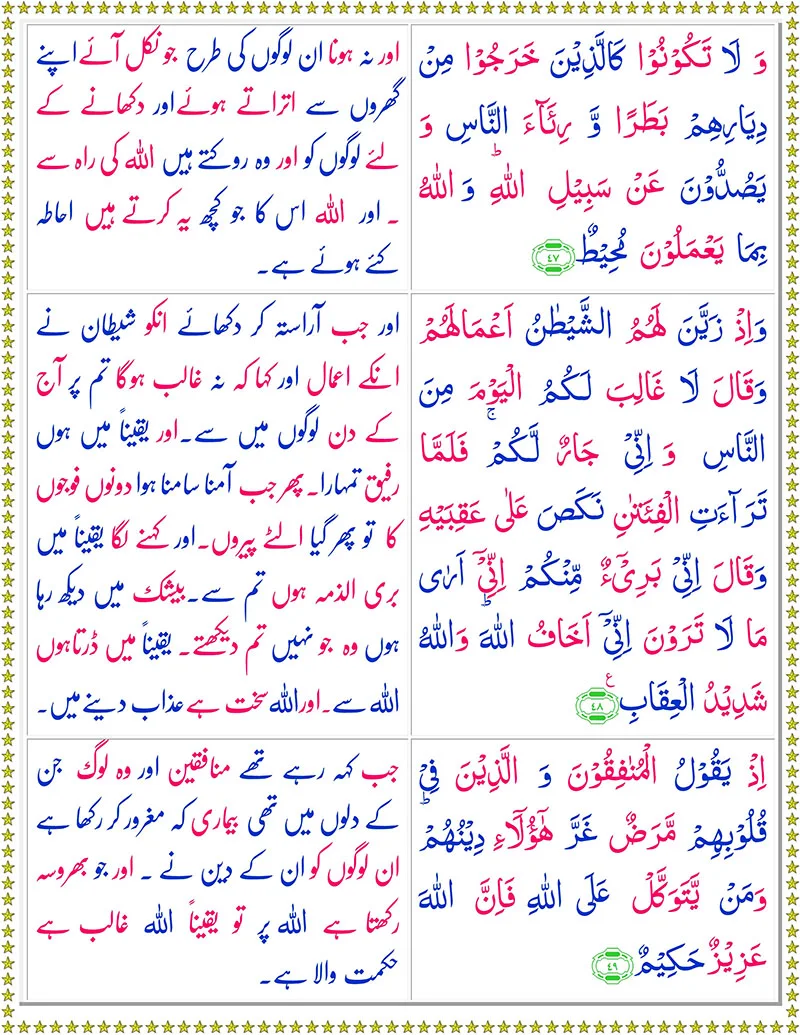 وَ لَا تَكُوْنُوْا كَالَّذِيْنَ خَرَجُوْا مِنْ
دِيَارِهِمْ بَطَرًا وَّ رِئَآءَ النَّاسِ وَ
يَصُدُّوْنَ عَنْ سَبِيْلِ اللّٰهِؕ وَ اللّٰهُ
بِمَا يَعْمَلُوْنَ مُحِيْطٌ ۴۷
اور نہ ہونا ان لوگوں کی طرح جو نکل آئے اپنے
گھروں سے اتراتے ہوئے اور دکھانے کے
لئے لوگوں کو اور وہ روکتے ہیں اللہ کی راہ سے
۔ اور اللہ اس کا جو کچھ یہ کرتے ہیں احاطہ
کئے ہوئے ہے۔
وَاِذْ زَيَّنَ لَهُمُ الشَّيْطٰنُ اَعْمَالَهُمْ
وَقَالَ لَا غَالِبَ لَكُمُ الْيَوْمَ مِنَ
النَّاسِ وَ اِنِّىْ جَارٌ لَّكُمْۚ فَلَمَّا
تَرَآءَتِ الْفِئَتٰنِ نَكَصَ عَلٰى عَقِبَيْهِ
وَقَالَ اِنِّىْ بَرِىْٓءٌ مِّنْكُمْ اِنِّىْۤ اَرٰى
مَا لَا تَرَوْنَ اِنِّىْۤ اَخَافُ اللّٰهَؕ وَاللّٰهُ
شَدِيْدُ الْعِقَابِ ۴۸ ع
اور جب آراستہ کر دکھائے انکو شیطان نے
انکے اعمال اور کہا کہ نہ غالب ہوگا تم پر آج
کے دن لوگوں میں سے۔اور یقیناً میں ہوں
رفیق تمہارا۔پھر جب آمنا سامنا ہوا دونوں فوجوں
کا تو پھر گیا الٹے پیروں۔اور کہنے لگا یقیناً میں
بری الذمہ ہوں تم سے۔بیشک میں دیکھ رہا
ہوں وہ جو نہیں تم دیکھتے۔ یقیناً میں ڈرتاہوں
اللہ سے۔اوراللہ سخت ہے عذاب دینے میں۔
اِذْ يَقُوْلُ الْمُنٰفِقُوْنَ وَ الَّذِيْنَ فِىْ
قُلُوْبِهِمْ مَّرَضٌ غَرَّ هٰٓؤُلَاۤءِ دِيْنُهُمْؕ
وَمَنْ يَّتَوَكَّلْ عَلَى اللّٰهِ فَاِنَّ اللّٰهَ
عَزِيْزٌ حَكِيْمٌ ۴۹
جب کہہ رہے تھے منافقین اور وہ لوگ جن
کے دلوں میں تھی بیماری کہ مغرور کر رکھا ہے
ان لوگوں کو ان کے دین نے ۔ اور جو بھروسہ
رکھتا ہے اللہ پر تو یقیناً اللہ غالب ہے
حکمت والا ہے۔